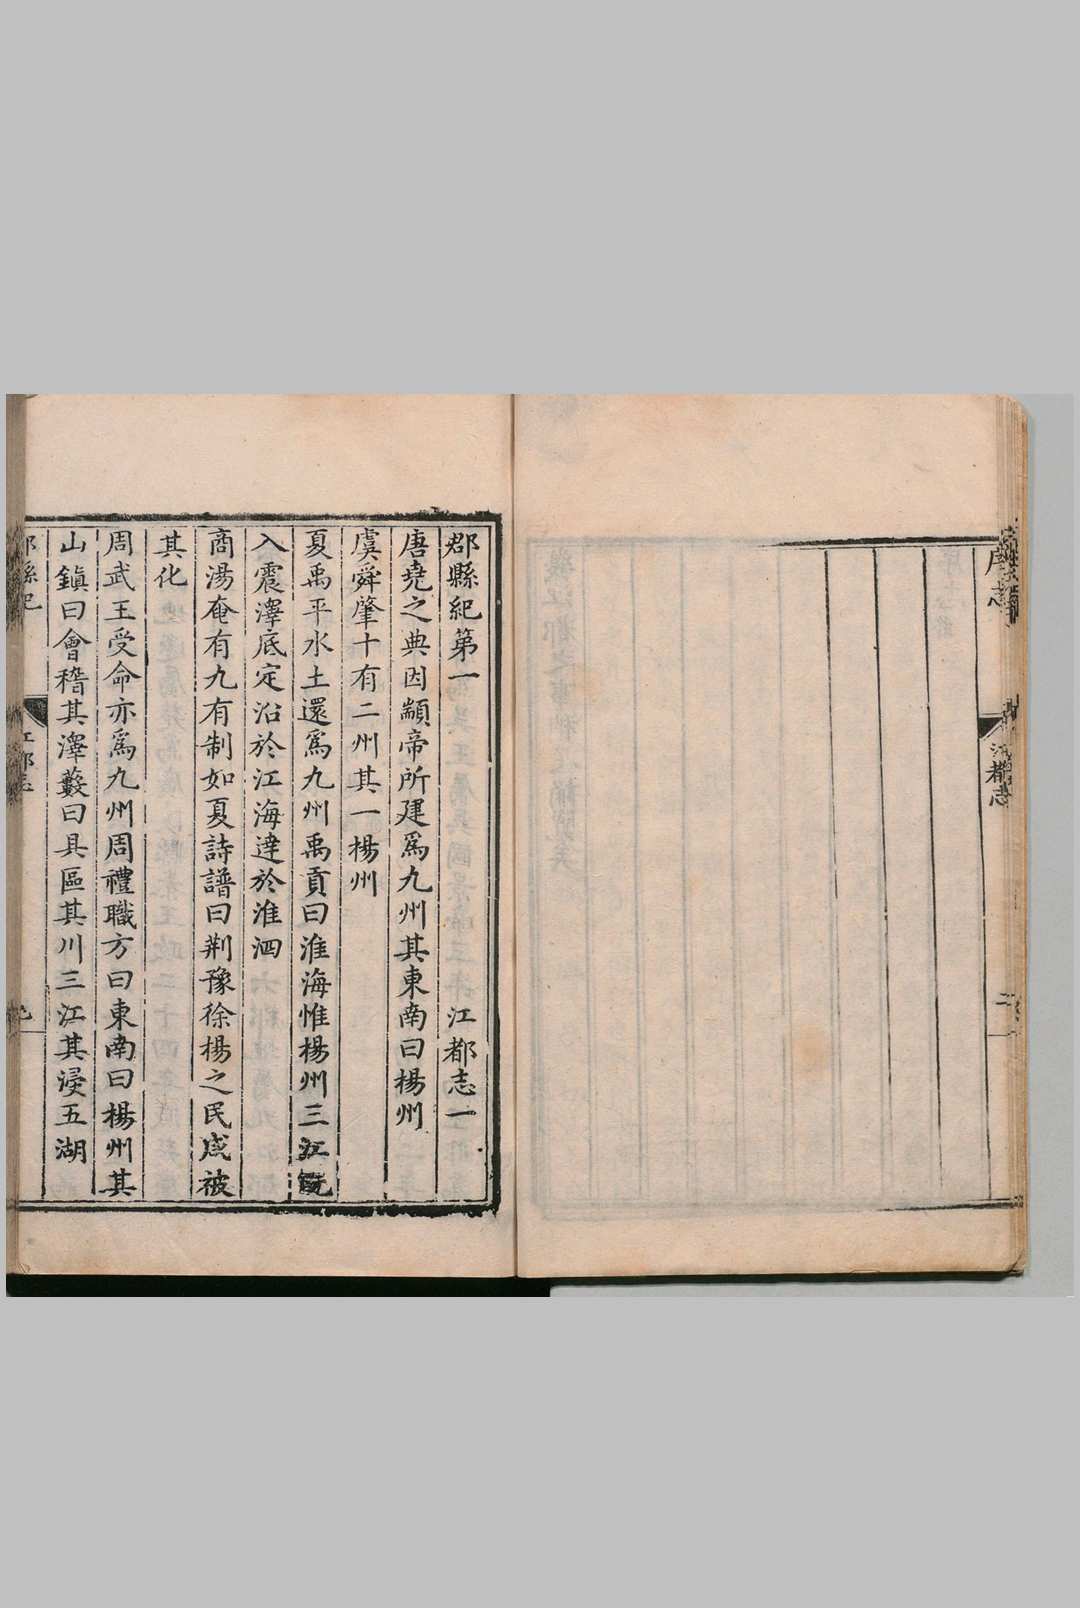 序志
江都志
二
郡縣紀第一 江都志一
唐堯之典因顓帝所建爲九州其東南曰楊州
虞舜肇十有二州其一楊州
夏禹平水土還爲九州禹貢曰淮海惟楊州三江旣
入震澤底定沿於江海達於淮泗
商湯奄有九有制如夏詩譜曰荆豫徐楊之民咸被
其化
周武王受命亦爲九州周禮職方曰東南曰楊州其
山鎭曰會稽其澤藪曰具區其川三江其浸五湖
郡縣紀
江都志